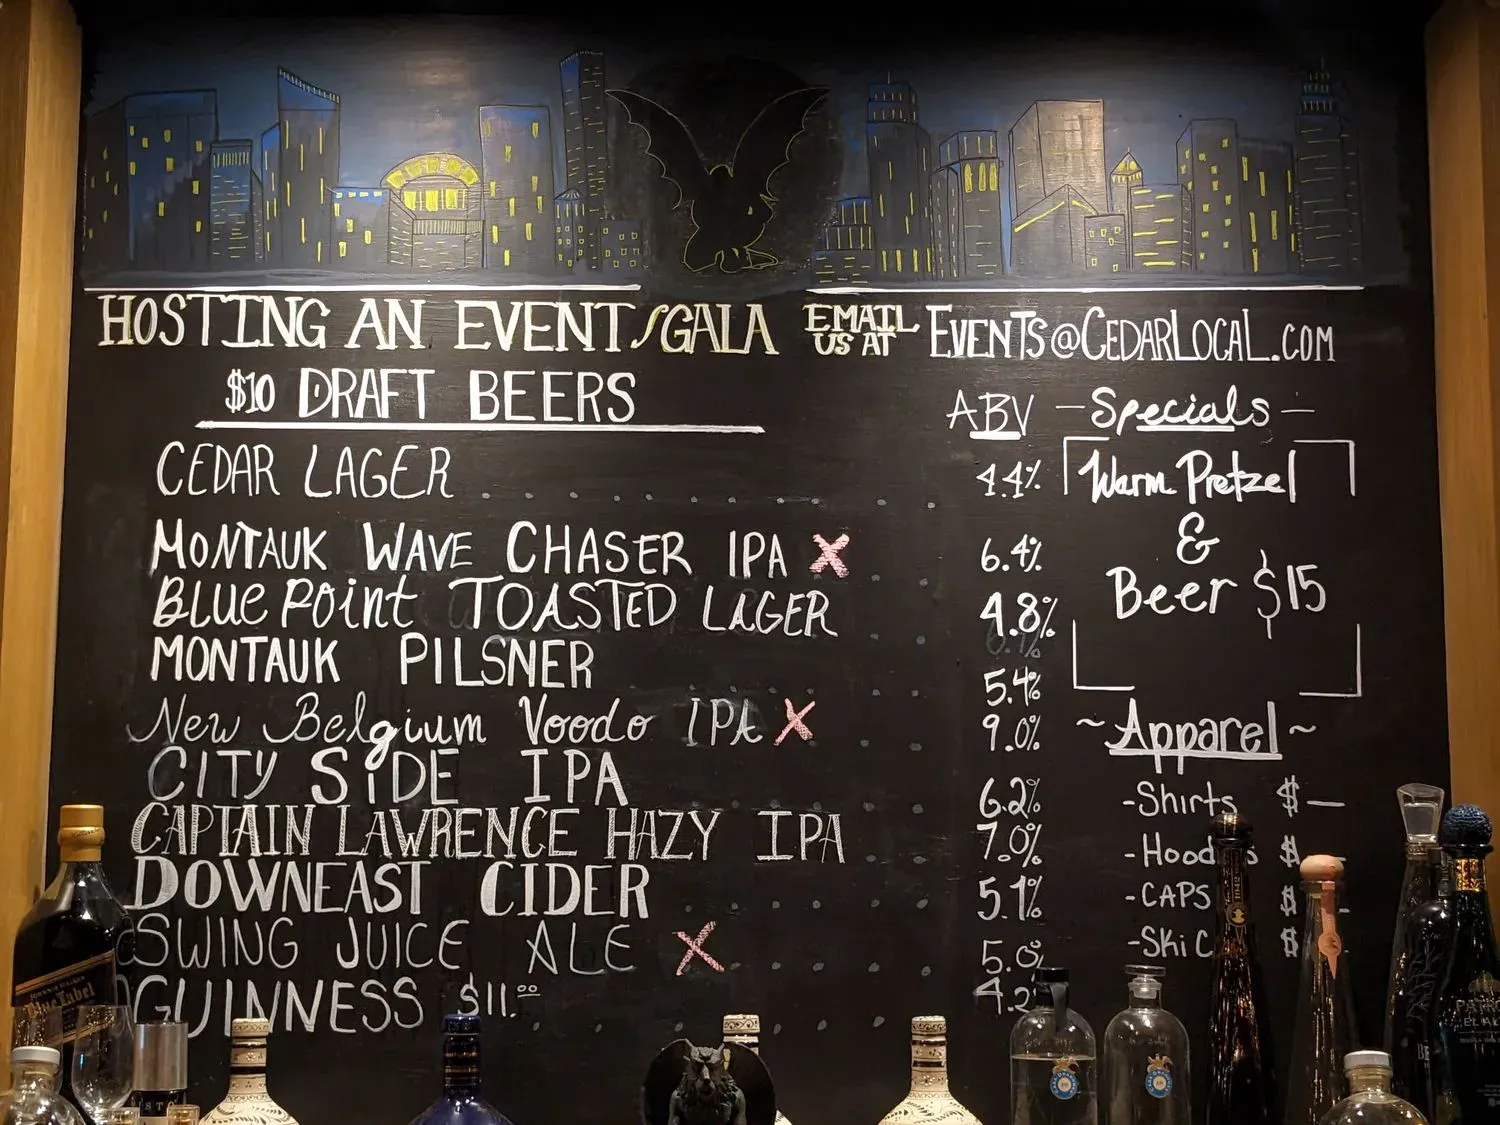 HOSTING AN EVENT/GALA EMAIL US AT EVENTS@CEDARLOCAL.COM
$10 DRAFT BEERS
ABV
CEDAR LAGER 4.4%
MONTAUK WAVE CHASER IPA X 6.4%
BLUE POINT TOASTED LAGER 4.8%
MONTAUK PILSNER 5.4%
New Belgium Voodo IPA X 9.0%
CITY SIDE IPA 6.2%
CAPTAIN LAWRENCE HAZY IPA 7.0%
DOWNEAST CIDER 5.1%
SWING JUICE ALE X 5.0%
GUINNESS $11.00 4.2
- Specials -
Warm Pretzel
&
Beer $15
~ Apparel ~
- Shirts $ —
- Hood s $ —
- CAPS $ —
- Ski C $
JOHNNIE WALKER
Blue Label